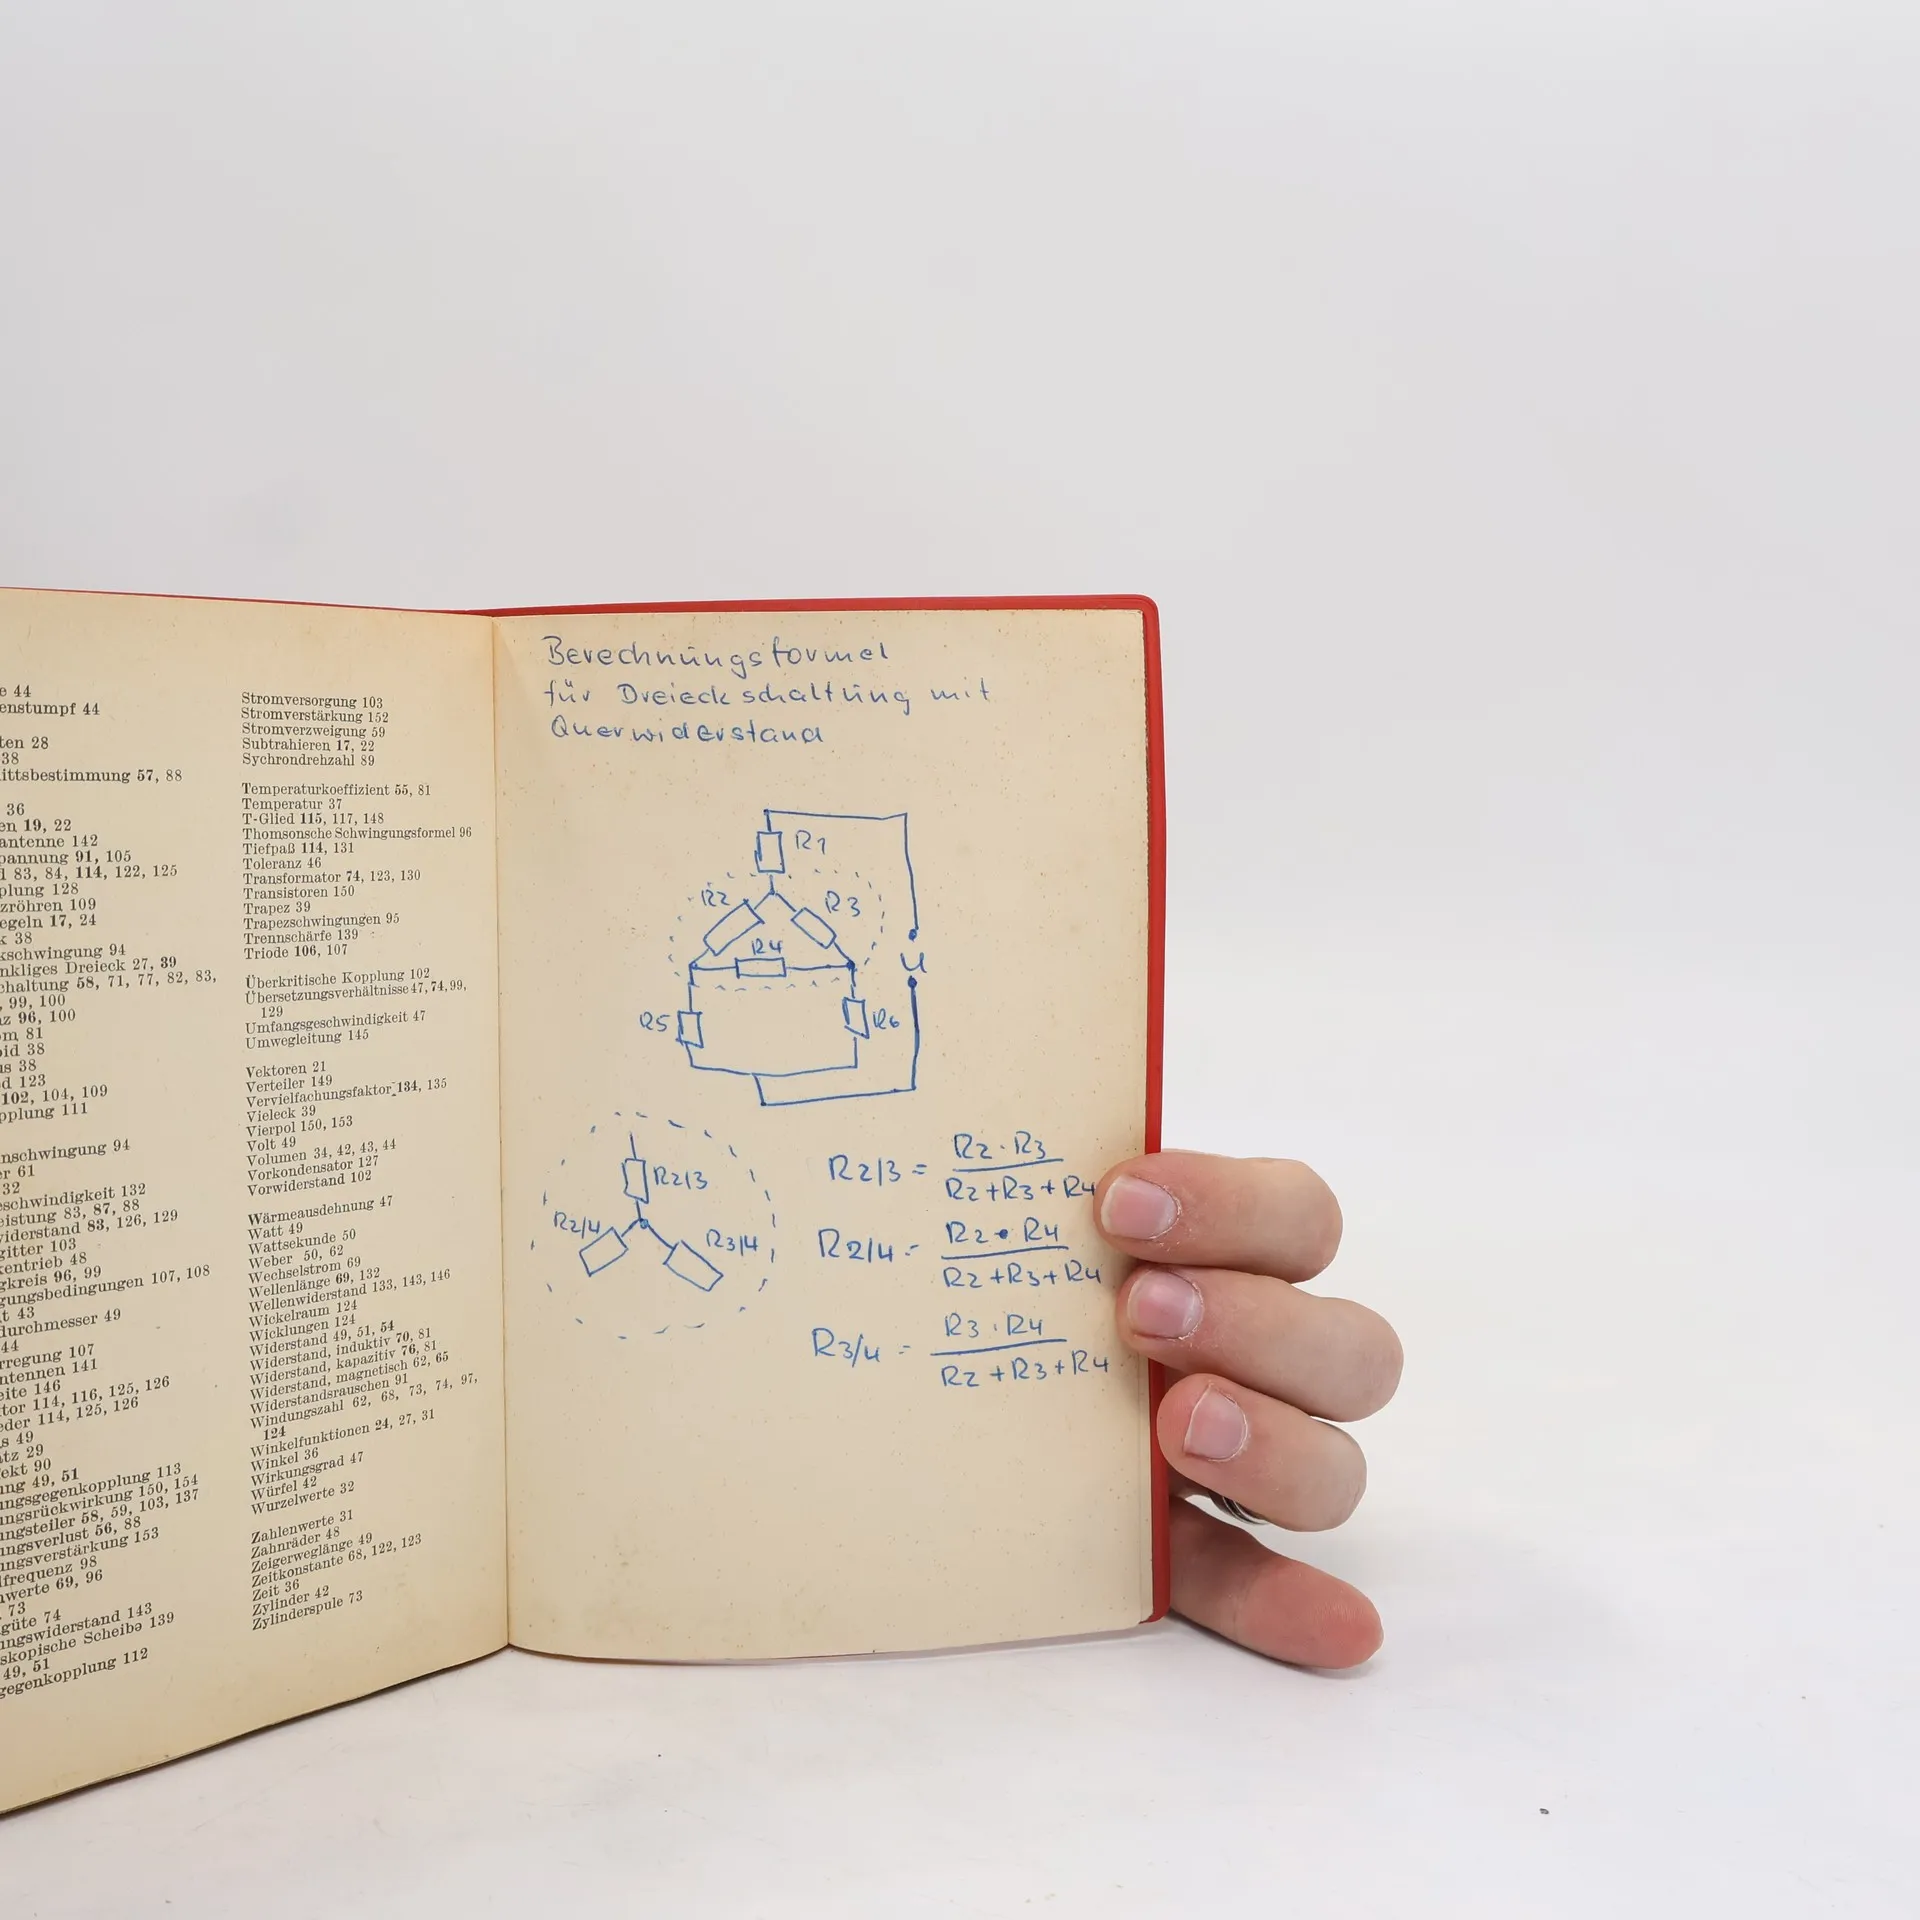 e 44
enstumpf 44
ten 28
38
ittsbestimmung 57, 88
36
en 19, 22
antenne 142
pannung 91, 105
d 83, 84, 114, 122, 125
plung 128
zröhren 109
egeln 17, 24
k 38
kschwingung 94
nkliges Dreieck 27, 39
chaltung 58, 71, 77, 82, 83,
, 99, 100
nz 96, 100
om 81
oid 38
us 38
d 123
102, 104, 109
pplung 111
nschwingung 94
er 61
32
schwindigkeit 132
eistung 83, 87, 88
widerstand 83, 126, 129
gitter 103
kentrieb 48
gkreis 96, 99
gungsbedingungen 107, 108
t 43
durchmesser 49
44
rregung 107
ntennen 141
eite 146
tor 114, 116, 125, 126
eder 114, 125, 126
s 49
atz 29
ekt 90
ng 49, 51
ungsgegenkopplung 113
ungsrückwirkung 150, 154
ungsteiler 58, 59, 103, 137
ungsverlust 56, 88
ungsverstärkung 153
lfrequenz 98
nwerte 69, 96
73
güte 74
ungswiderstand 143
skopische Scheibe 139
49, 51
gegenkopplung 112
Stromversorgung 103
Stromverstärkung 152
Stromverzweigung 59
Subtrahieren 17, 22
Sychrondrehzahl 89
Temperaturkoeffizient 55, 81
Temperatur 37
T-Glied 115, 117, 148
Thomsonsche Schwingungsformel 96
Tiefpaß 114, 131
Toleranz 46
Transformator 74, 123, 130
Transistoren 150
Trapez 39
Trapezschwingungen 95
Trennschärfe 139
Triode 106, 107
Überkritische Kopplung 102
Übersetzungsverhältnisse 47, 74, 99,
129
Umfangsgeschwindigkeit 47
Umwegleitung 145
Vektoren 21
Verteiler 149
Vervielfachungsfaktor 134, 135
Vieleck 39
Vierpol 150, 153
Volt 49
Volumen 34, 42, 43, 44
Vorkondensator 127
Vorwiderstand 102
Wärmeausdehnung 47
Watt 49
Wattsekunde 50
Weber 50, 62
Wechselstrom 69
Wellenlänge 69, 132
Wellenwiderstand 133, 143, 146
Wickelraum 124
Wicklungen 124
Widerstand 49, 51, 54
Widerstand, induktiv 70, 81
Widerstand, kapazitiv 76, 81
Widerstand, magnetisch 62, 65
Widerstandsrauschen 91
Windungszahl 62, 68, 73, 74, 97,
124
Winkelfunktionen 24, 27, 31
Winkel 36
Wirkungsgrad 47
Würfel 42
Wurzelwerte 32
Zahlenwerte 31
Zahnräder 48
Zeigerweglänge 49
Zeitkonstante 68, 122, 123
Zeit 36
Zylinder 42
Zylinderspule 73
Berechnungsformel
für Dreieckschaltung mit
Querwiderstand
R1
R2 R3
R4
U
R5 R6
R2/3
R2/4 R3/4
R2/3 = R2 · R3
R2+R3+R4
R2/4 = R2 · R4
R2+R3+R4
R3/4 = R3 · R4
R2+R3+R4